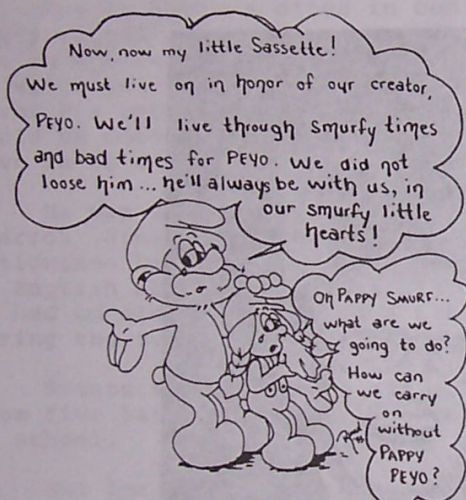 Now, now my little Sassette!
We must live on in honor of our creator,
PEYO. We'll live through smurfy times
and bad times for PEYO. We did not
loose him... he'll always be with us, in
our smurfy little
hearts!
Oh PAPPY SMURF...
what are we
going to do?
How can
we carry
on
without
PAPPY
PEYO?